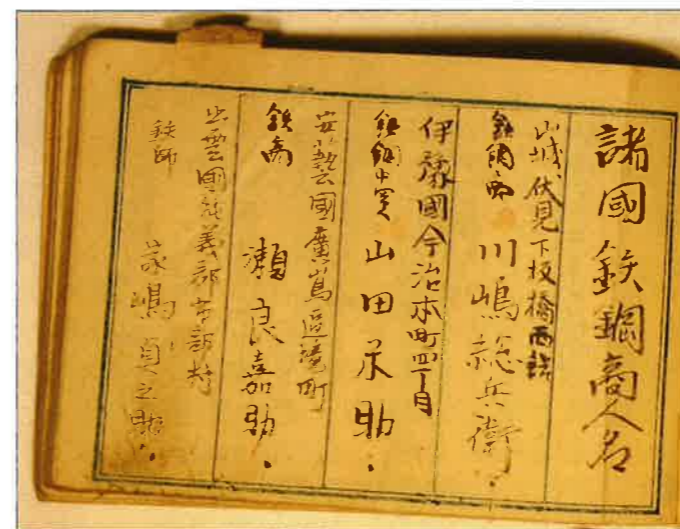 諸國鉄鋼商人名
山城、伏見下板橋西詰
鉄鋼商 川嶋総兵衛
伊豫國今治本町四丁目
鉄鋼中買 山田永助
安藝國廣嶌區境町
鉄商 瀬良嘉助
出雲國能義郡村
鉄師 嶋貞之助